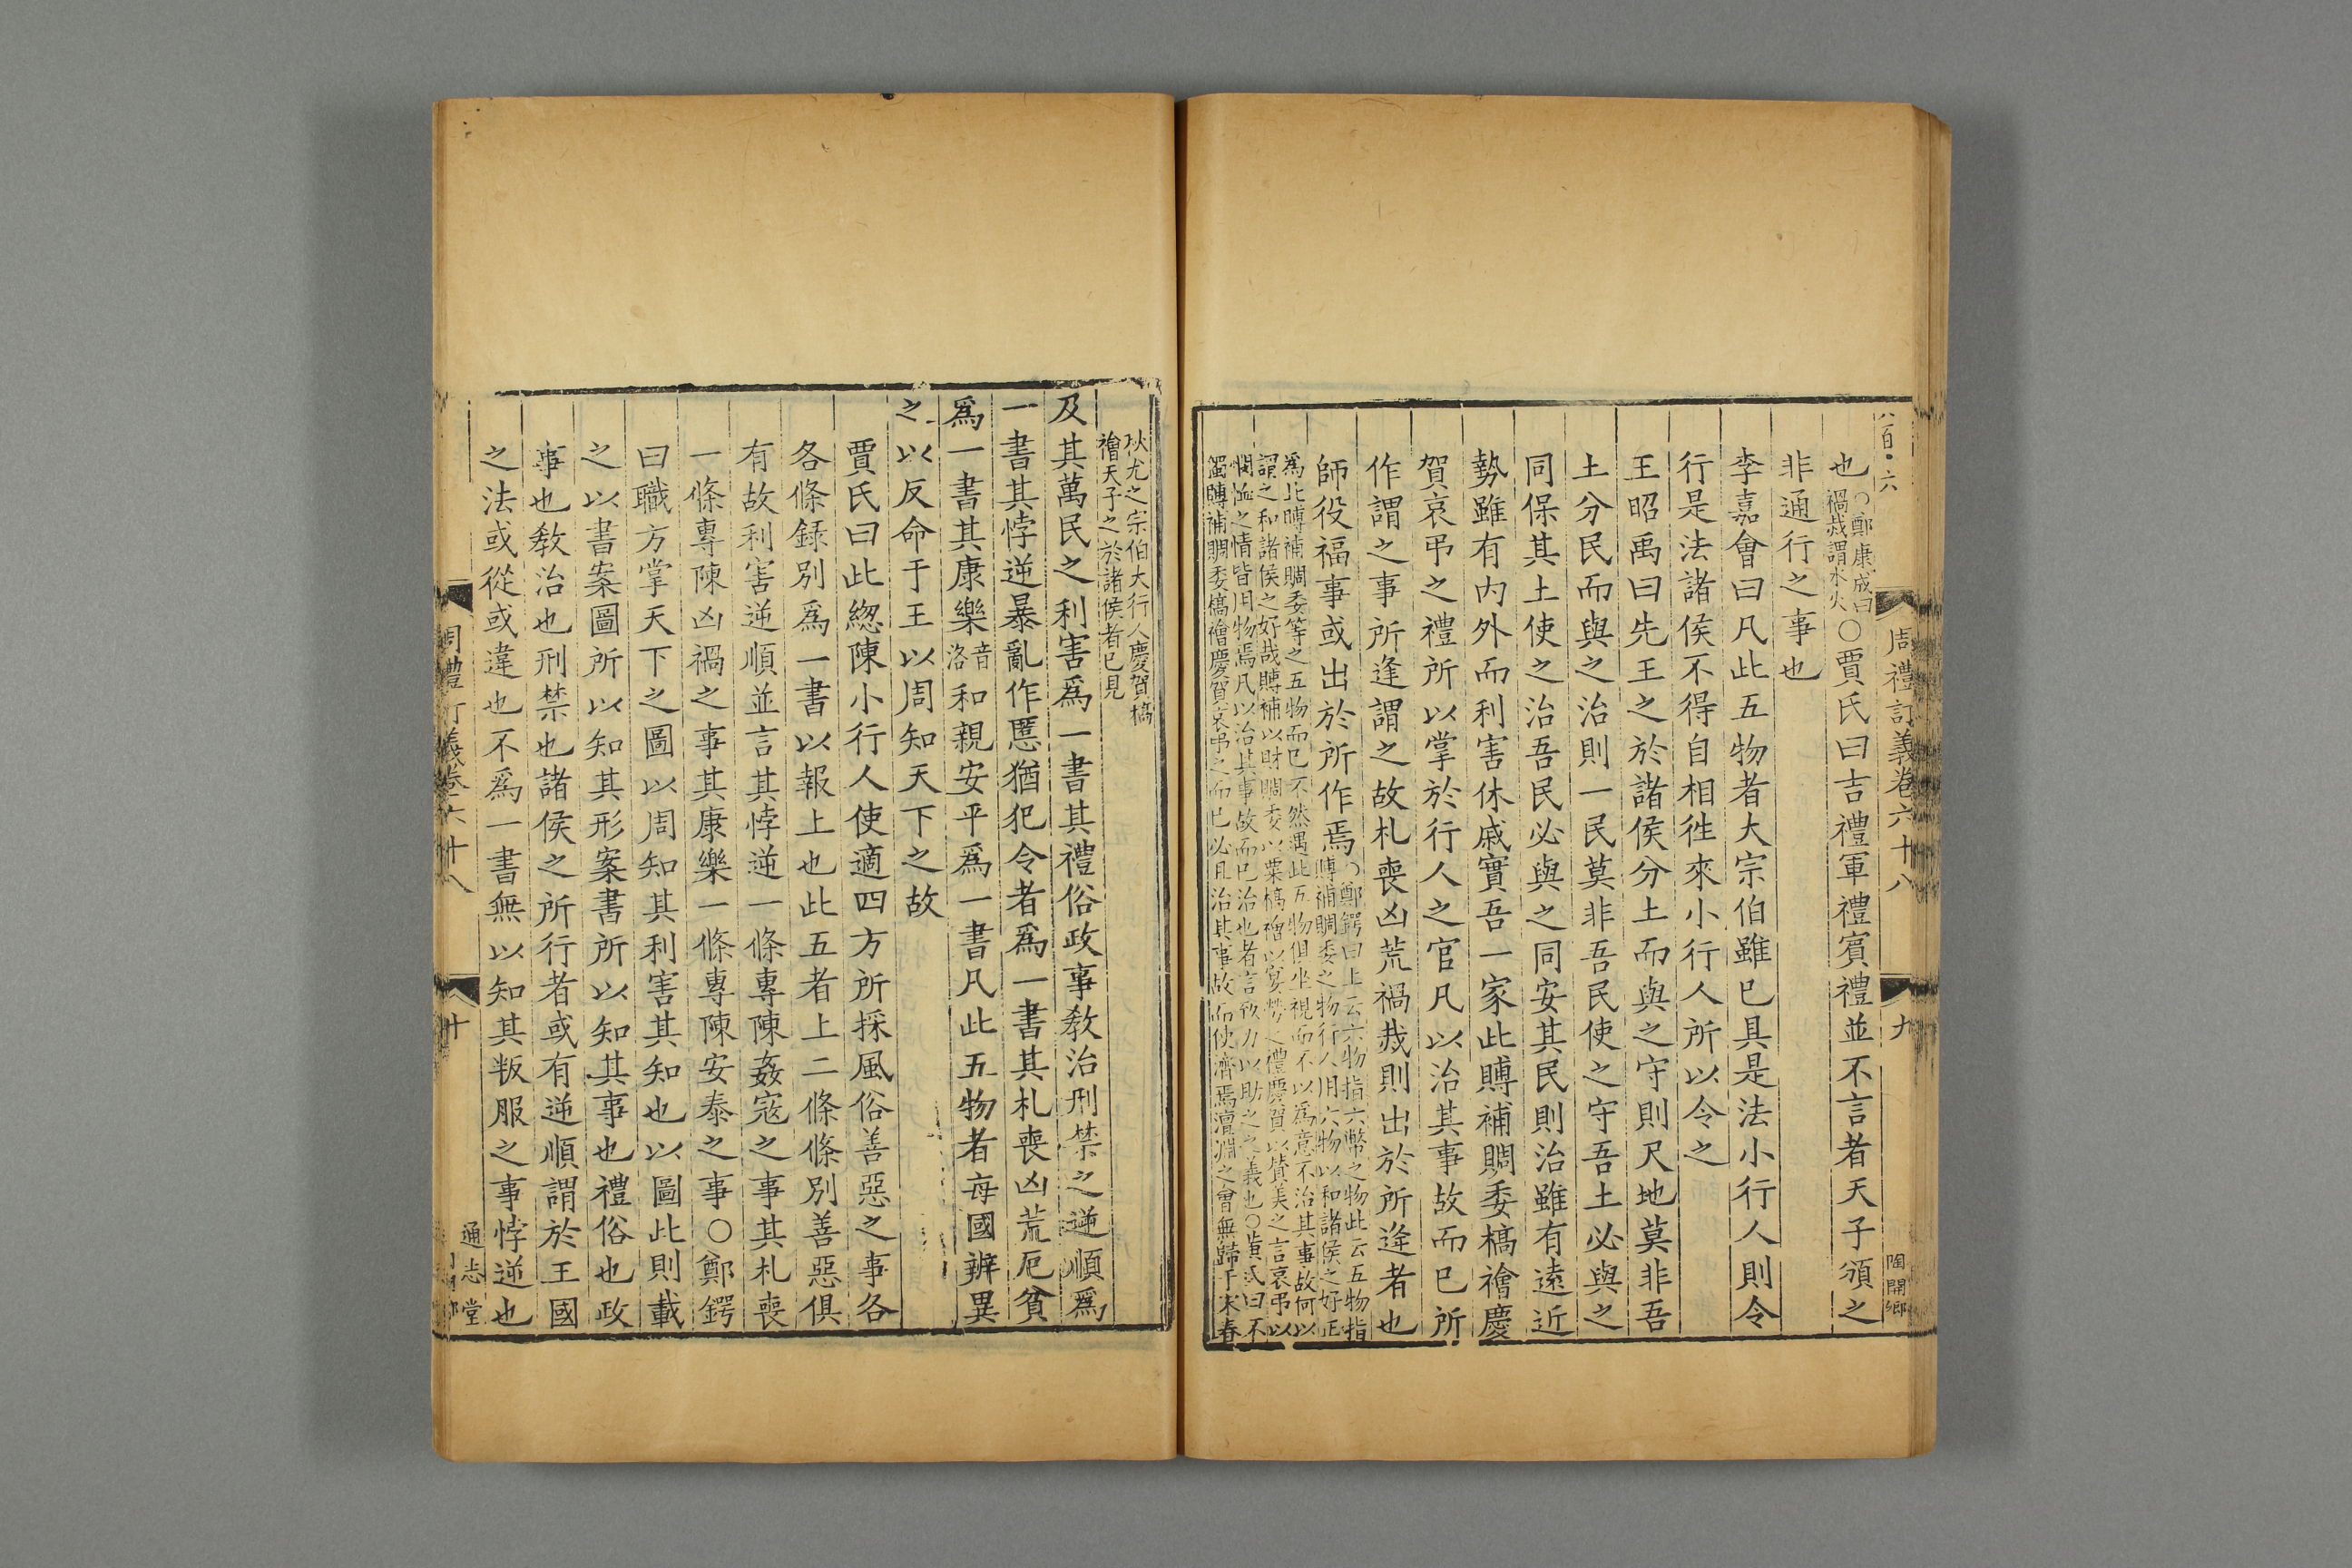 周禮訂義卷六十八
九
也○鄭康成曰禍烖謂水火○賈氏曰吉禮軍禮賓禮並不言者天子頒之
非通行之事也
李嘉會曰凡此五物者大宗伯雖已具是法小行人則令
行是法諸侯不得自相徃來小行人所以令之
王昭禹曰先王之於諸侯分土而與之守則尺地莫非吾
土分民而與之治則一民莫非吾民使之守吾土必與之
同保其土使之治吾民必與之同安其民則治雖有遠近
勢雖有內外而利害休戚實吾一家此賻補賙委槁禬慶
賀哀弔之禮所以掌於行人之官凡以治其事故而已所
作謂之事所逢謂之故札喪凶荒禍烖則出於所逢者也
師役福事或出於所作焉○鄭鍔曰上云六物指六幣之物此云五物指
賻補賙委之物行人用六物以和諸侯之好正
爲此賻補賙委等之五物而已不然遇此五物但坐視而不以爲意不治其事故何以
謂之和諸侯之好哉賻補以財賙委以粟槁禬以宴勞之禮慶賀以贊美之言哀弔以
憫恤之情皆用物焉凡以治其事故而已治也者言致力以助之之義也○黃氏曰不
獨賻補賙委槁禬慶賀哀弔之而已必且治其事故而使濟焉澶淵之會無歸于宋春
秋尤之宗伯大行人慶賀槁
禬天子之於諸侯者已見
及其萬民之利害爲一書其禮俗政事教治刑禁之逆順爲
一書其悖逆暴亂作慝猶犯令者爲一書其札喪凶荒厄貧
爲一書其康樂音洛和親安平爲一書凡此五物者每國辨異
之以反命于王以周知天下之故
賈氏曰此緫陳小行人使適四方所採風俗善惡之事各
各條錄別爲一書以報上也此五者上二條條別善惡俱
有故利害逆順並言其悖逆一條專陳姦寇之事其札喪
一條專陳凶禍之事其康樂一條專陳安泰之事○鄭鍔
曰職方掌天下之圖以周知其利害其知也以圖此則載
之以書案圖所以知其形案書所以知其事也禮俗也政
事也教治也刑禁也諸侯之所行者或有逆順謂於王國
之法或從或違也不爲一書無以知其叛服之事悖逆也
周禮訂義卷六十八
十
通志堂